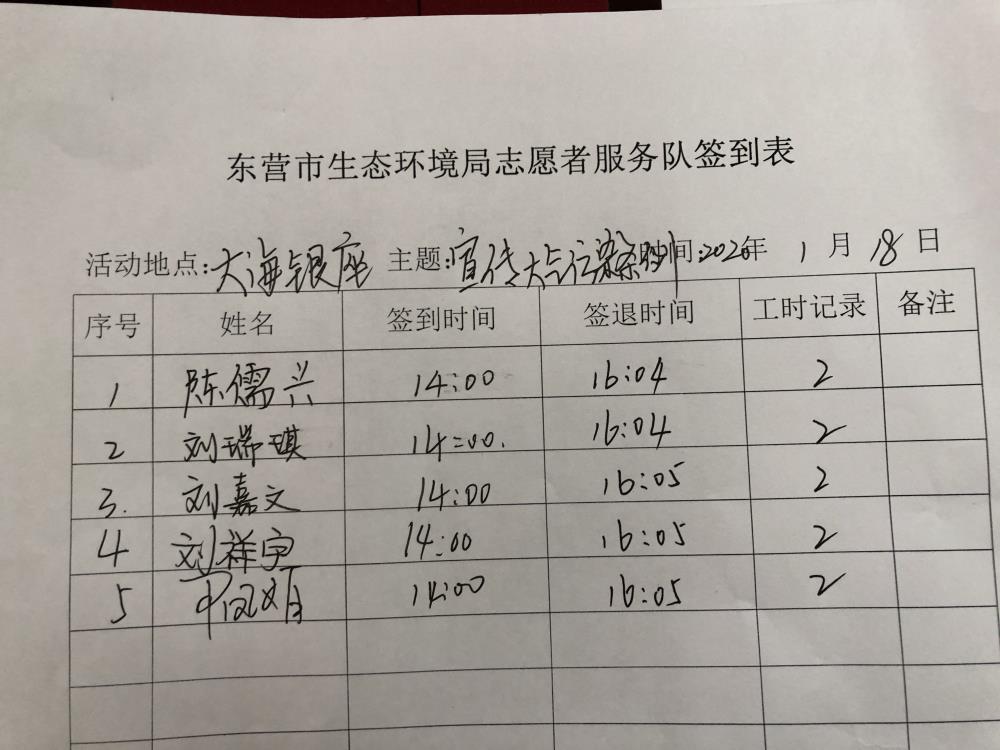 东营市生态环境局志愿者服务队签到表
活动地点:大海银座 主题:宣传大气污染防治 时间:2020年 1 月 18 日
序号 姓名 签到时间 签退时间 工时记录 备注
1 陈儒兴 14:00 16:04 2
2 刘瑞琪 14:00. 16:04 2
3. 刘嘉文 14:00 16:05 2
4 刘祥宇 14:00 16:05 2
5 14:00 16:05 2